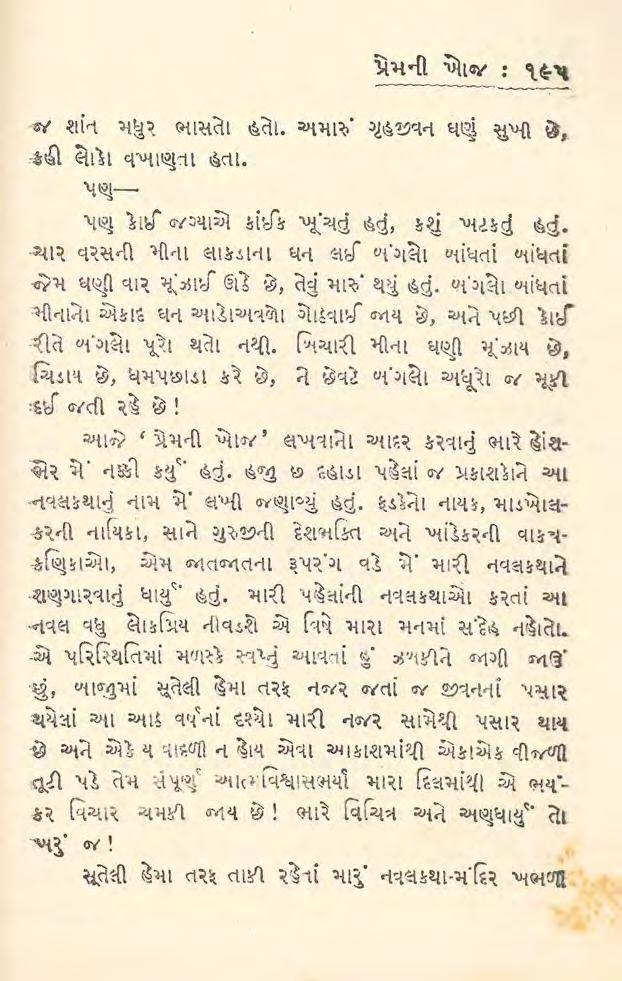 પ્રેમની ખોજ : ૧૯૫
જ શાંત મધુર ભાસતો હતો. અમારું ગૃહજીવન ઘણું સુખી છે,
કહી લોકો વખાણતા હતા.
પણ—
પણ કોઈ જગ્યાએ કાંઈક ખૂંચતું હતું, કશું ખટકતું હતું.
ચાર વરસની મીના લાકડાના ઘન લઈ બંગલો બાંધતાં બાંધતાં
જેમ ઘણી વાર મૂંઝાઈ ઊઠે છે, તેવું મારું થયું હતું. બંગલો બાંધતાં
મીનાનો એકાદ ઘન આડોઅવળો ગોઠવાઈ જાય છે, અને પછી કોઈ
રીતે બંગલો પૂરો થતો નથી. બિચારી મીના ઘણી મૂંઝાય છે,
ચિડાય છે, ધમપછાડા કરે છે, ને છેવટે બંગલો અધૂરો જ મૂકી
દઈ જતી રહે છે !
આજે ‘ પ્રેમની ખોજ ’ લખવાનો આદર કરવાનું ભારે હોંશ-
ભેર મેં નક્કી કર્યું હતું. હજી છ દહાડા પહેલાં જ પ્રકાશકોને આ
નવલકથાનું નામ મેં લખી જણાવ્યું હતું. ફડકેનો નાયક, માડખોલ-
કરની નાયિકા, સાને ગુરુજીની દેશભક્તિ અને ખાંડેકરની વાક્ય-
કણિકાઓ, એમ જાતજાતના રૂપરંગ વડે મેં મારી નવલકથાને
શણગારવાનું ધાર્યું હતું. મારી પહેલાંની નવલકથાઓ કરતાં આ
નવલ વધુ લોકપ્રિય નીવડશે એ વિષે મારા મનમાં સંદેહ નહોતો.
એ પરિસ્થિતિમાં મળસ્કે સ્વપ્નું આવતાં હું ઝબકીને જાગી જાઉં
છું, બાજુમાં સૂતેલી હેમા તરફ નજર જતાં જ જીવનનાં પસાર
થયેલાં આ આઠ વર્ષનાં દશ્યો મારી નજર સામેથી પસાર થાય
છે અને એકે ય વાદળી ન હોય એવા આકાશમાંથી એકાએક વીજળી
તૂટી પડે તેમ સંપૂર્ણ આત્મવિશ્વાસભર્યા મારા દિલમાંથી એ ભયં-
કર વિચાર ચમકી જાય છે ! ભારે વિચિત્ર અને અણધાર્યું તો
ખરું જ !
સૂતેલી હેમા તરફ તાકી રહેતાં મારું નવલકથા-મંદિર ખભળી